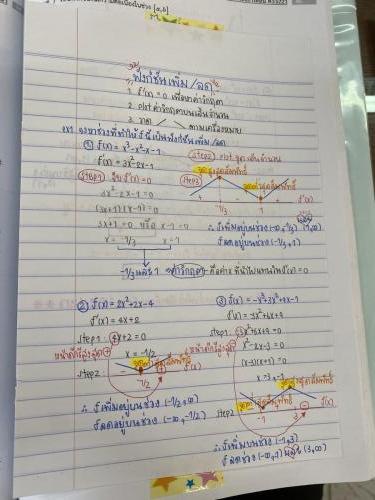 ฟังก์ชันเพิ่ม/ลด
1. f'(x) = 0 เพื่อหาค่าวิกฤต
2. plot ค่าวิกฤตบนเส้นจำนวน
3. วาด ตามเครื่องหมาย
ex1 จงหาช่วงที่ทำให้ f เป็นฟังก์ชันเพิ่ม/ลด
① f(x) = x³-x²-x-7
f'(x) = 3x²-2x-1
step1 จับ f'(x) = 0
3x²-2x-1 = 0
(3x+1)(x-1) = 0
3x+1 = 0 หรือ x-1 = 0
x = -1/3 x = 1
step2 plot จุดบนเส้นจำนวน
step3
+ - +
-1/3 1 f'(x)
∴ f เพิ่มอยู่บนช่วง (-∞,-1/3) (1,∞)
f ลดอยู่บนช่วง (-1/3,1)
-1/3 และ 1 ค่าวิกฤต คือค่า x ที่นำไปแทนใน f'(x) = 0
② f(x) = 2x²+2x-4
f'(x) = 4x+2
step1 : 4x+2 = 0
x = -1/2
step2 :
-1/2 f'(x)
∴ f เพิ่มอยู่บนช่วง (-1/2,∞)
f ลดอยู่บนช่วง (-∞,-1/2)
③ f(x) = -x³+3x²+9x-1
f'(x) = -3x²+6x+9
step1 : -3x²+6x+9 = 0
x²-2x-3 = 0
(x-3)(x+1) = 0
x = 3,-1
step2
-1 3 f'(x)
∴ f เพิ่มบนช่วง (-1,3)
f ลดช่วง (-∞,-1) และ (3,∞)